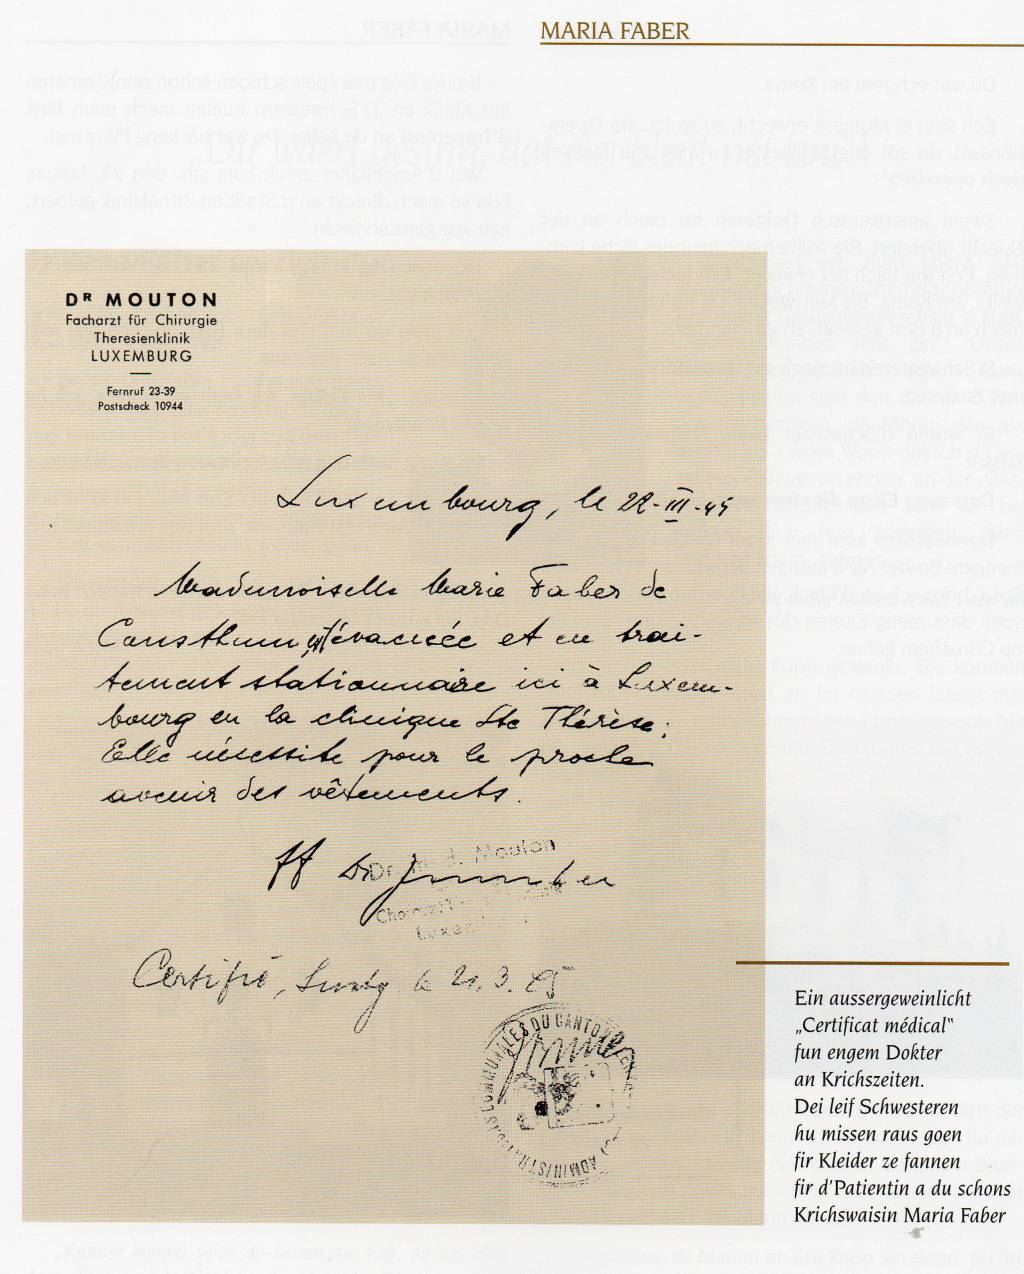 MARIA FABER
DR MOUTON
Facharzt für Chirurgie
Theresienklinik
LUXEMBURG
Fernruf 23-39
Postscheck 10944
Luxembourg, le 22-III-45
Mademoiselle Marie Faber de
Consthum, évacuée et en trai-
tement stationnaire ici à Luxem-
bourg en la clinique Ste Thérèse;
Elle nécessite pour le proche
avenir des vêtements.
Dr
Dr. Mouton
Certifié, le 21.3.45
COMMUNALES DU CANTON
ADMINISTRATIONS
Ein aussergeweinlicht
„Certificat médical“
fun engem Dokter
an Krichszeiten.
Dei leif Schwesteren
hu missen raus goen
fir Kleider ze fannen
fir d'Patientin a du schons
Krichswaisin Maria Faber